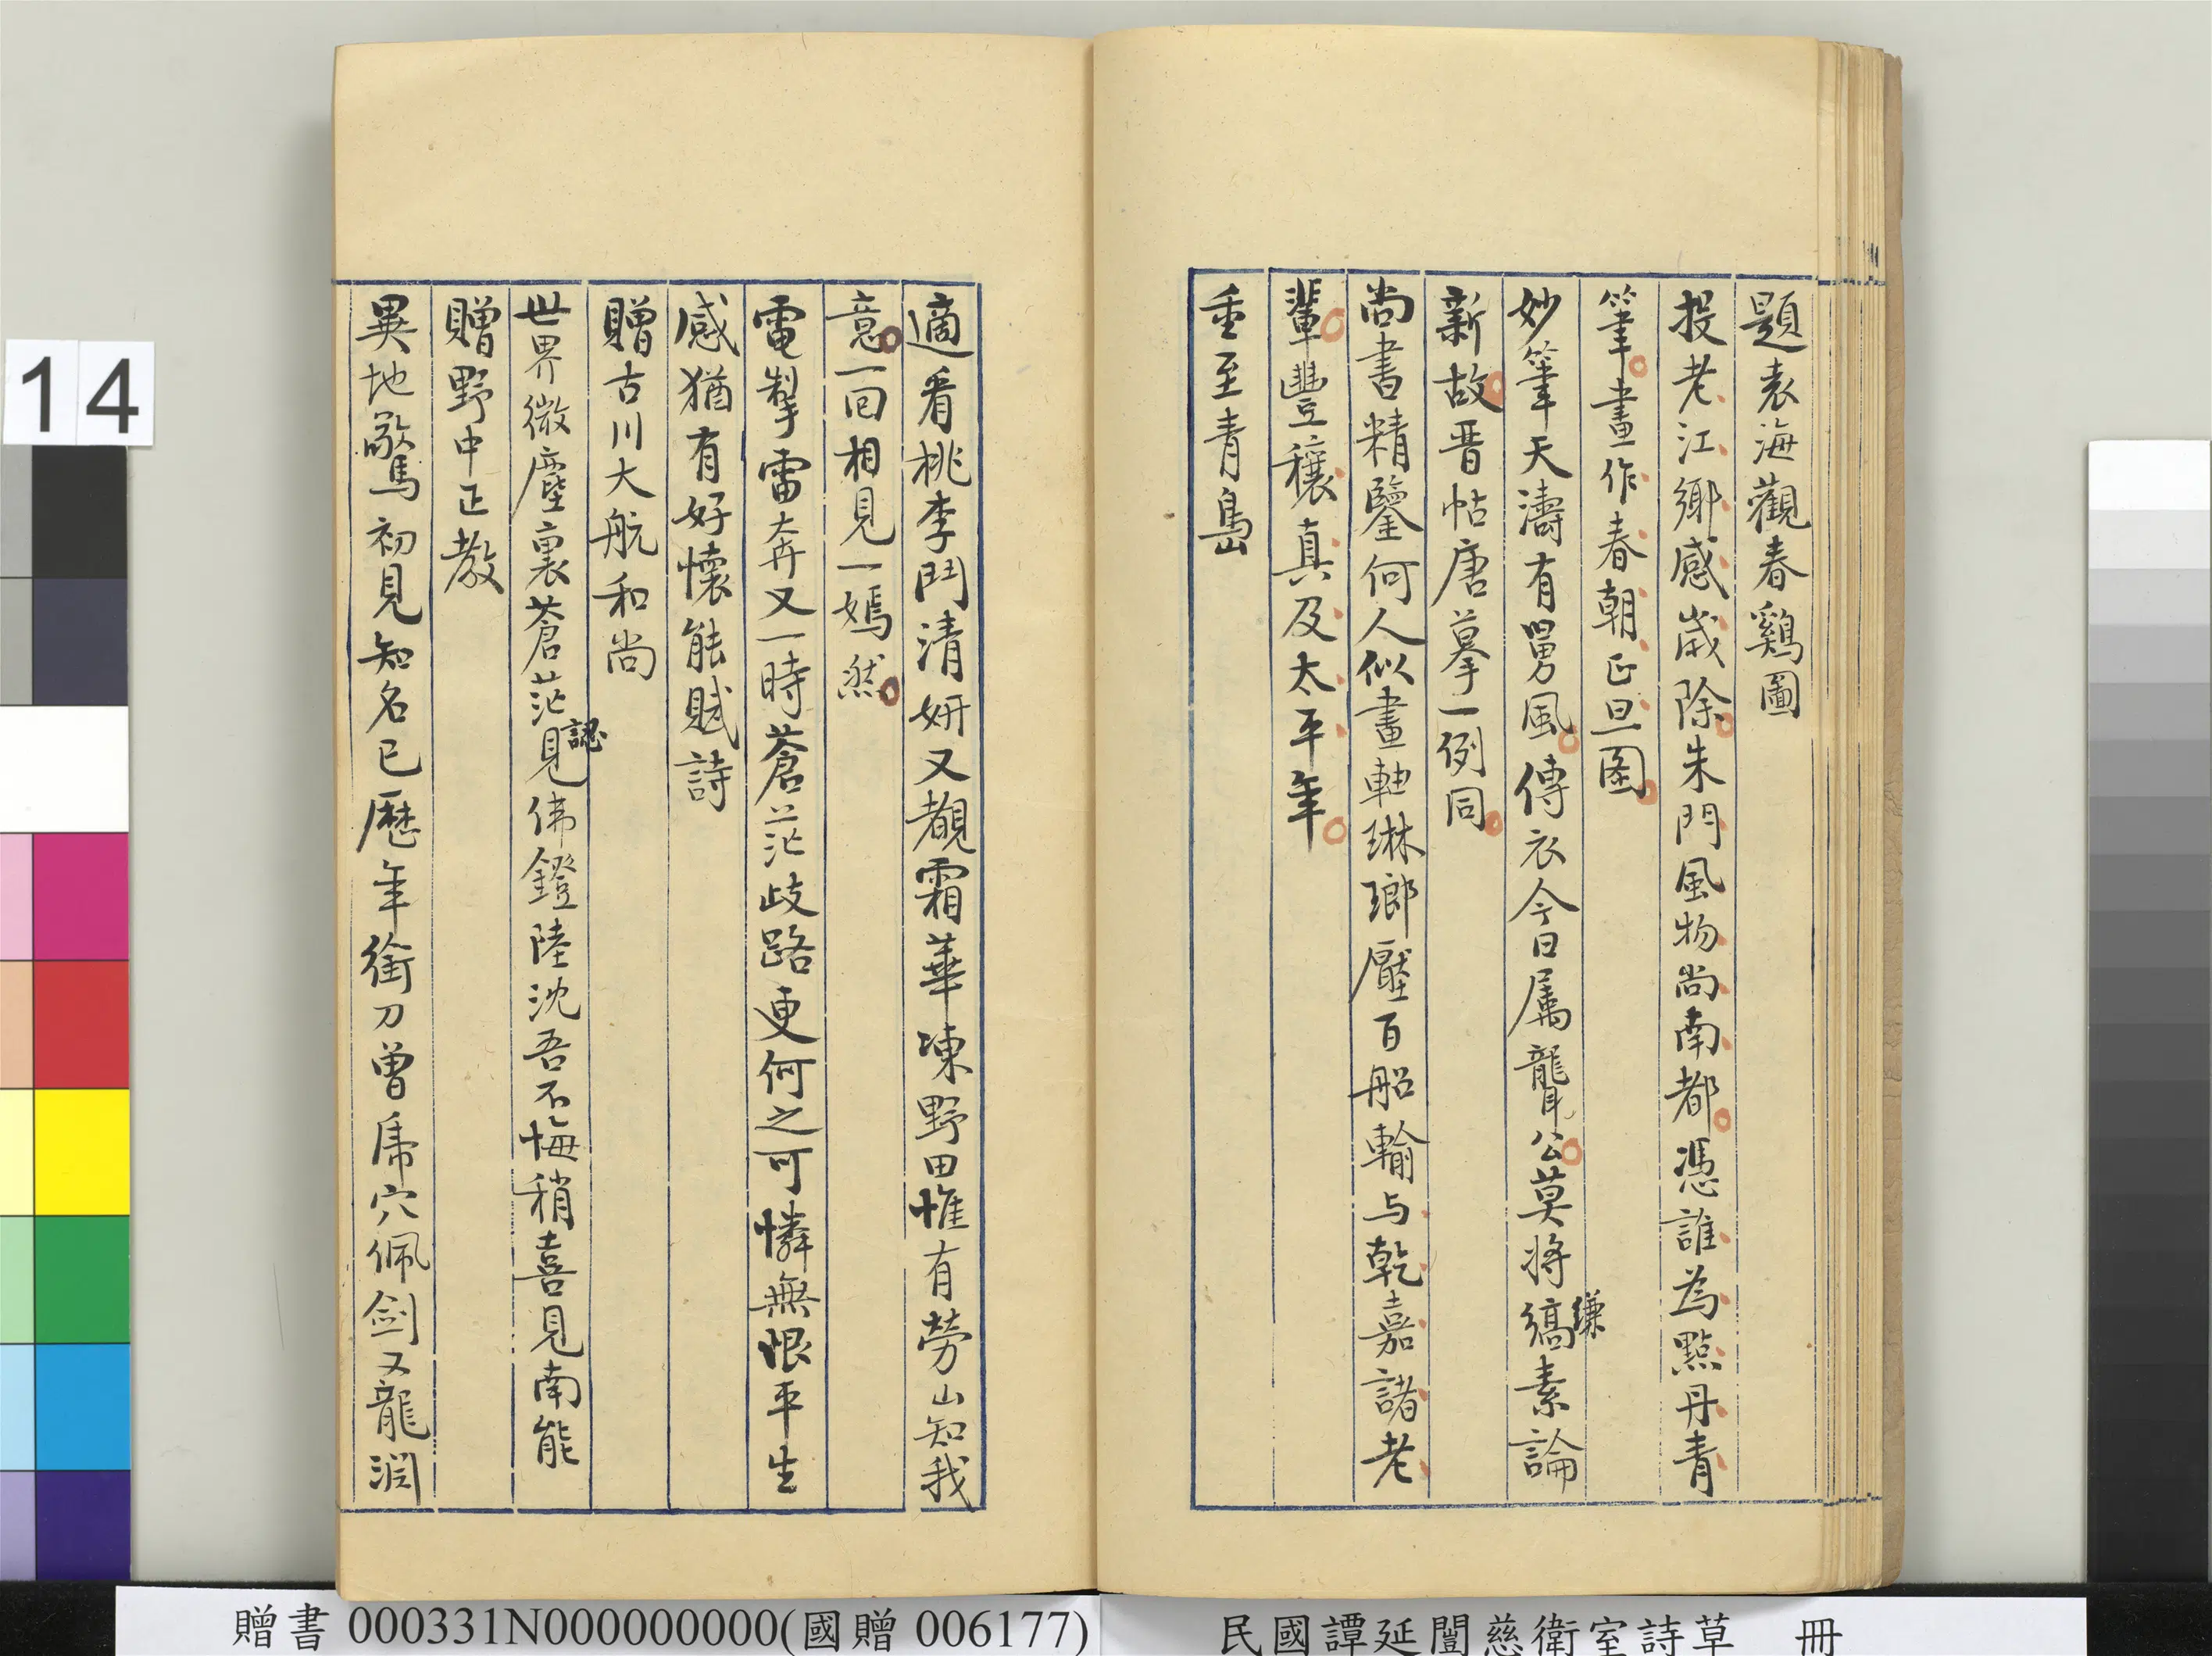 題袁海觀春鷄圖
投老江鄉感歲除朱門風物尚南都憑誰為點丹青
筆畫作春朝正旦圖
妙筆天濤有舅風傳衣今日屬聾公莫將縞素論
縑
新故晋帖唐摹一例同
尚書精鑒何人似畫軸琳瑯壓百船輸与乾嘉諸老
輩豐穰真及太平年
重至青島
適看桃李鬥清妍又覩霜華凍野田惟有勞山知我
意一回相見一嫣然
電掣雷奔又一時蒼茫歧路更何之可憐無恨平生
感猶有好懷能賦詩
贈古川大航和尚
世界微塵裏蒼茫見佛鐙陸沈吾不悔稍喜見南能
認
贈野中正教
異地驚初見知名已歷年銜刀曾虎穴佩劍又龍淵
14
贈書 000331N000000000(國贈 006177)
民國譚延闓慈衛室詩草 冊